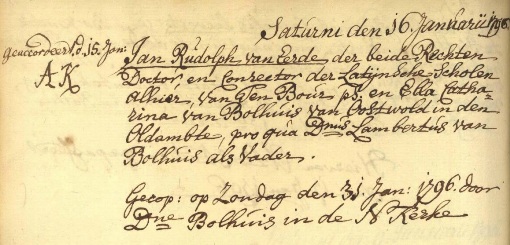 Saturni den 16 Januarii 1796.
geaccordeert d. 15 Jan:
AK
Jan Rudolph van Eerde der beide Rechten
Doctor en Conrector der Latijnsche Scholen
alhier, van Ten Boer, ps. en Elda Catha=
rina van Bolhuis van Oostwold in den
Oldambte, pro qua Dnus Lambertus van
Bolhuis als Vader.
Gecop: op Zondag den 31 Jan: 1796. door
Dne Bolhuis in de N Kerke